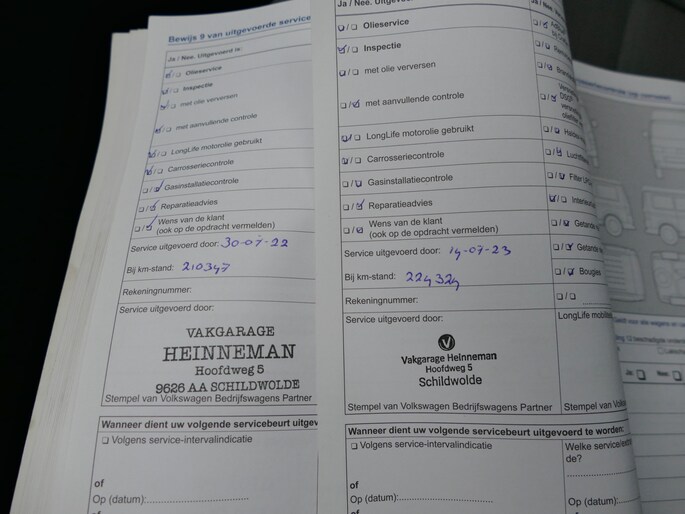 Bewijs 9 van uitgevoerde service
Ja / Nee. Uitgevoerd is:
Olieservice
Inspectie
met olie verversen
met aanvullende controle
LongLife motorolie gebruikt
Carrosseriecontrole
Gasinstallatiecontrole
Reparatieadvies
Wens van de klant
(ook op de opdracht vermelden)
Service uitgevoerd door: 30-07-22
Bij km-stand: 210347
Rekeningnummer:
Service uitgevoerd door:
VAKGARAGE
HEINNEMAN
Hoofdweg 5
9626 AA SCHILDWOLDE
Stempel van Volkswagen Bedrijfswagens Partner
Wanneer dient uw volgende servicebeurt uitgev
Volgens service-intervalindicatie
of
Op (datum):
Ja / Nee. Uitgevoerd is:
Olieservice
Inspectie
met olie verversen
met aanvullende controle
LongLife motorolie gebruikt
Carrosseriecontrole
Gasinstallatiecontrole
Reparatieadvies
Wens van de klant
(ook op de opdracht vermelden)
Service uitgevoerd door: 14-07-23
Bij km-stand: 224324
Rekeningnummer:
Service uitgevoerd door:
Vakgarage Heinneman
Hoofdweg 5
Schildwolde
Stempel van Volkswagen Bedrijfswagens Partner
Wanneer dient uw volgende servicebeurt uitgevoerd te worden:
Volgens service-intervalindicatie
of
Op (datum):
Ja / Nee.
Luchtfilt
Getande
Getande
Bougies
LongLife mobilite
Stempel van Volks
Welke service
de?
Ja:
Nee: